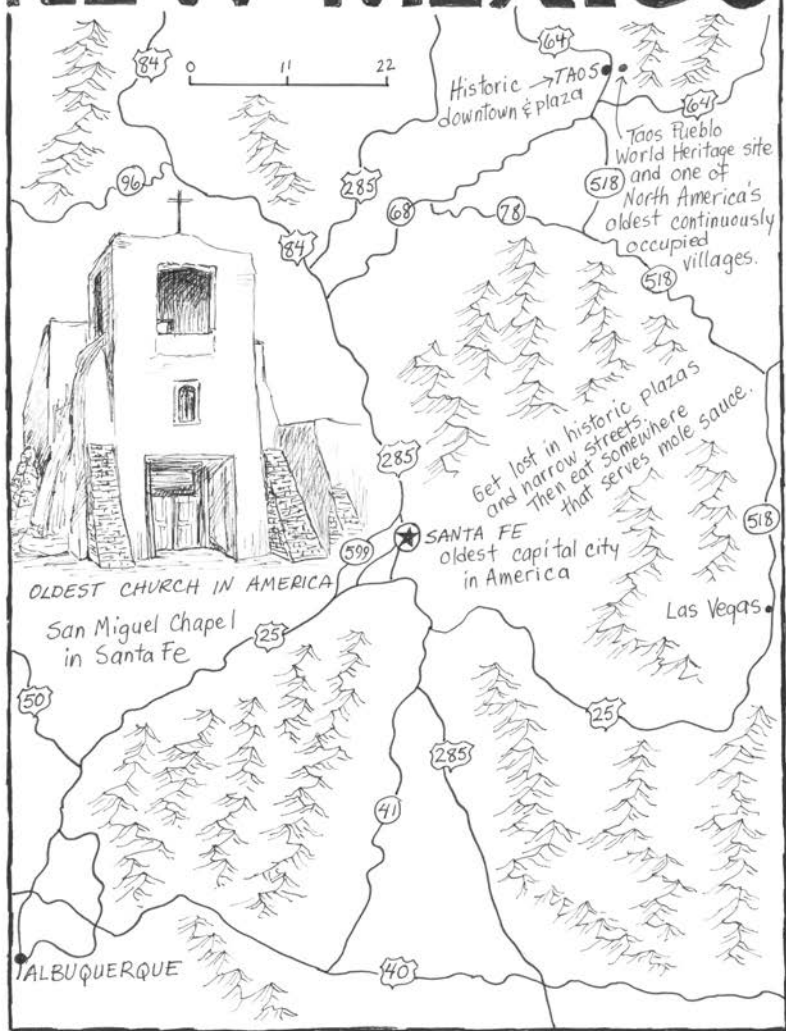 NEW MEXICO
84
0 11 22
64
Historic → TAOS
downtown & plaza
64
Taos Pueblo
World Heritage site
and one of
North America's
oldest continuously
occupied
villages.
96
285
518
68
78
84
518
Get lost in historic plazas
and narrow streets.
Then eat somewhere
that serves mole sauce.
285
518
599
SANTA FE
oldest capital city
in America
OLDEST CHURCH IN AMERICA
San Miguel Chapel
in Santa Fe
25
Las Vegas
50
25
285
41
ALBUQUERQUE
40